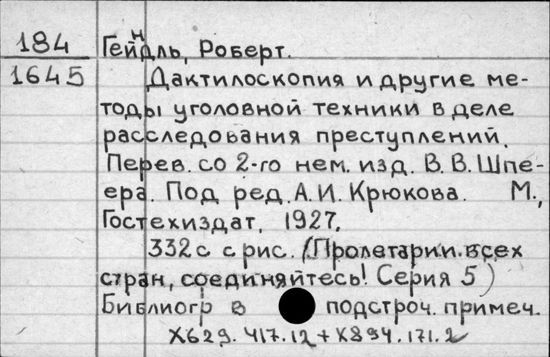 184 Гейндль, Роберт.
1645 Дактилоскопия и другие ме-
тоды уголовной техники в деле
расследования преступлений.
Перев. со 2-го нем. изд. В. В. Шпе-
ера. Под ред. А. И. Крюкова. М.,
Гостехиздат, 1927.
332 с с рис. (Пролетарии всех
стран, соединяйтесь! Серия 5)
Библиогр в подстроч. примеч.
X629.417.12+X894.171.2